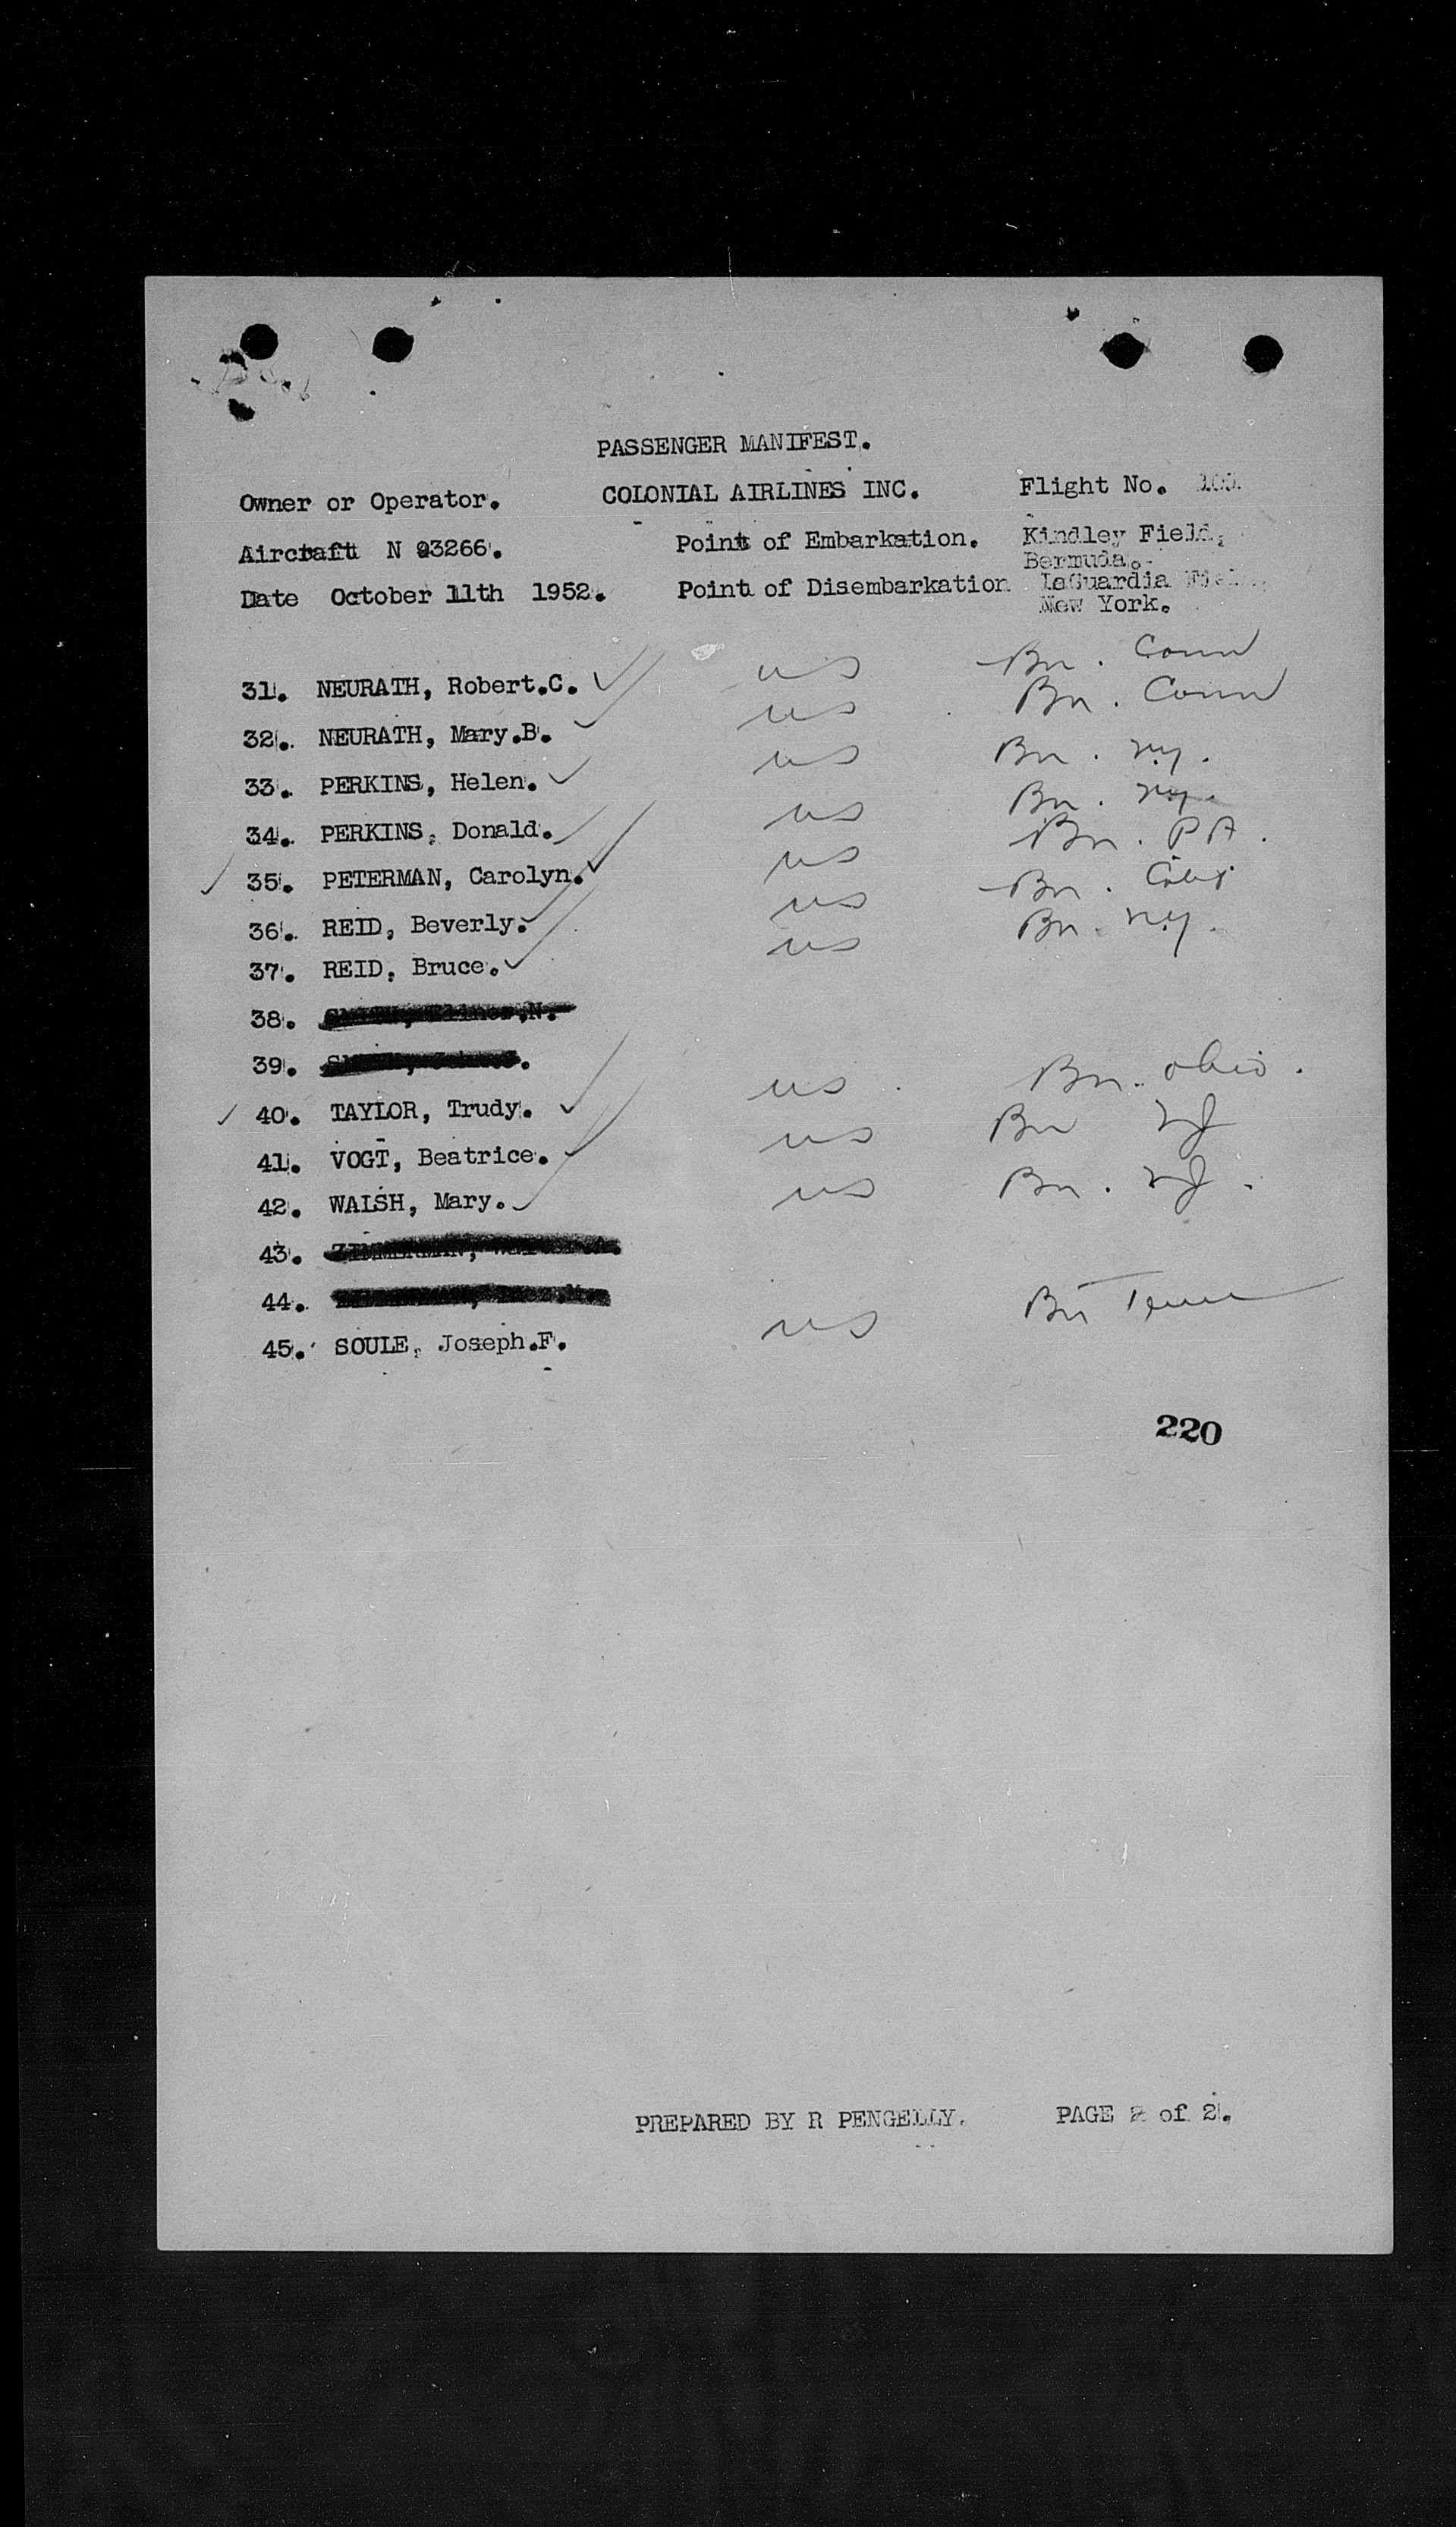 PASSENGER MANIFEST.
Owner or Operator. COLONIAL AIRLINES INC. Flight No.
Aircraft N 93266. Point of Embarkation. Kindley Field,
Bermuda.
Date October 11th 1952. Point of Disembarkation LaGuardia Field,
New York.
31. NEURATH, Robert.C. ✓ us Bn. Conn
32. NEURATH, Mary.B. ✓ us Bn. Conn
33. PERKINS, Helen. ✓ us Bn. ny.
34. PERKINS, Donald. ✓ us Bn. ny.
✓ 35. PETERMAN, Carolyn. ✓ us Bn. PA.
36. REID, Beverly. ✓ us Bn.
37. REID, Bruce. ✓ us Bn. ny.
38.
39.
✓ 40. TAYLOR, Trudy. ✓ us Bn. ohio.
41. VOGT, Beatrice. ✓ us Bn NJ
42. WALSH, Mary. ✓ us Bn. NJ.
43. ZIMMERMAN,
44.
45. SOULE, Joseph.F. us Bn Tenn
220
PREPARED BY R PENGELLY. PAGE 2 of 2.